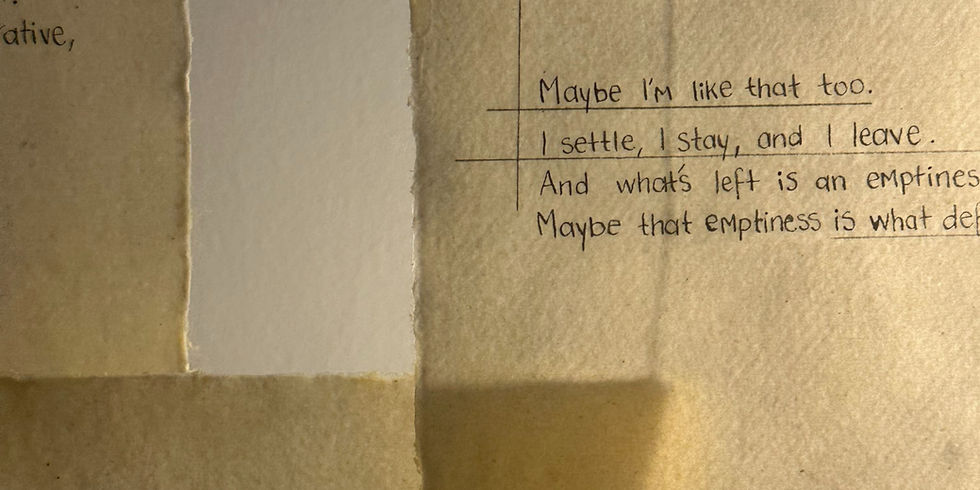 ative,
Maybe I'm like that too.
I settle, I stay, and I leave.
And what's left is an emptines
Maybe that emptiness is what def